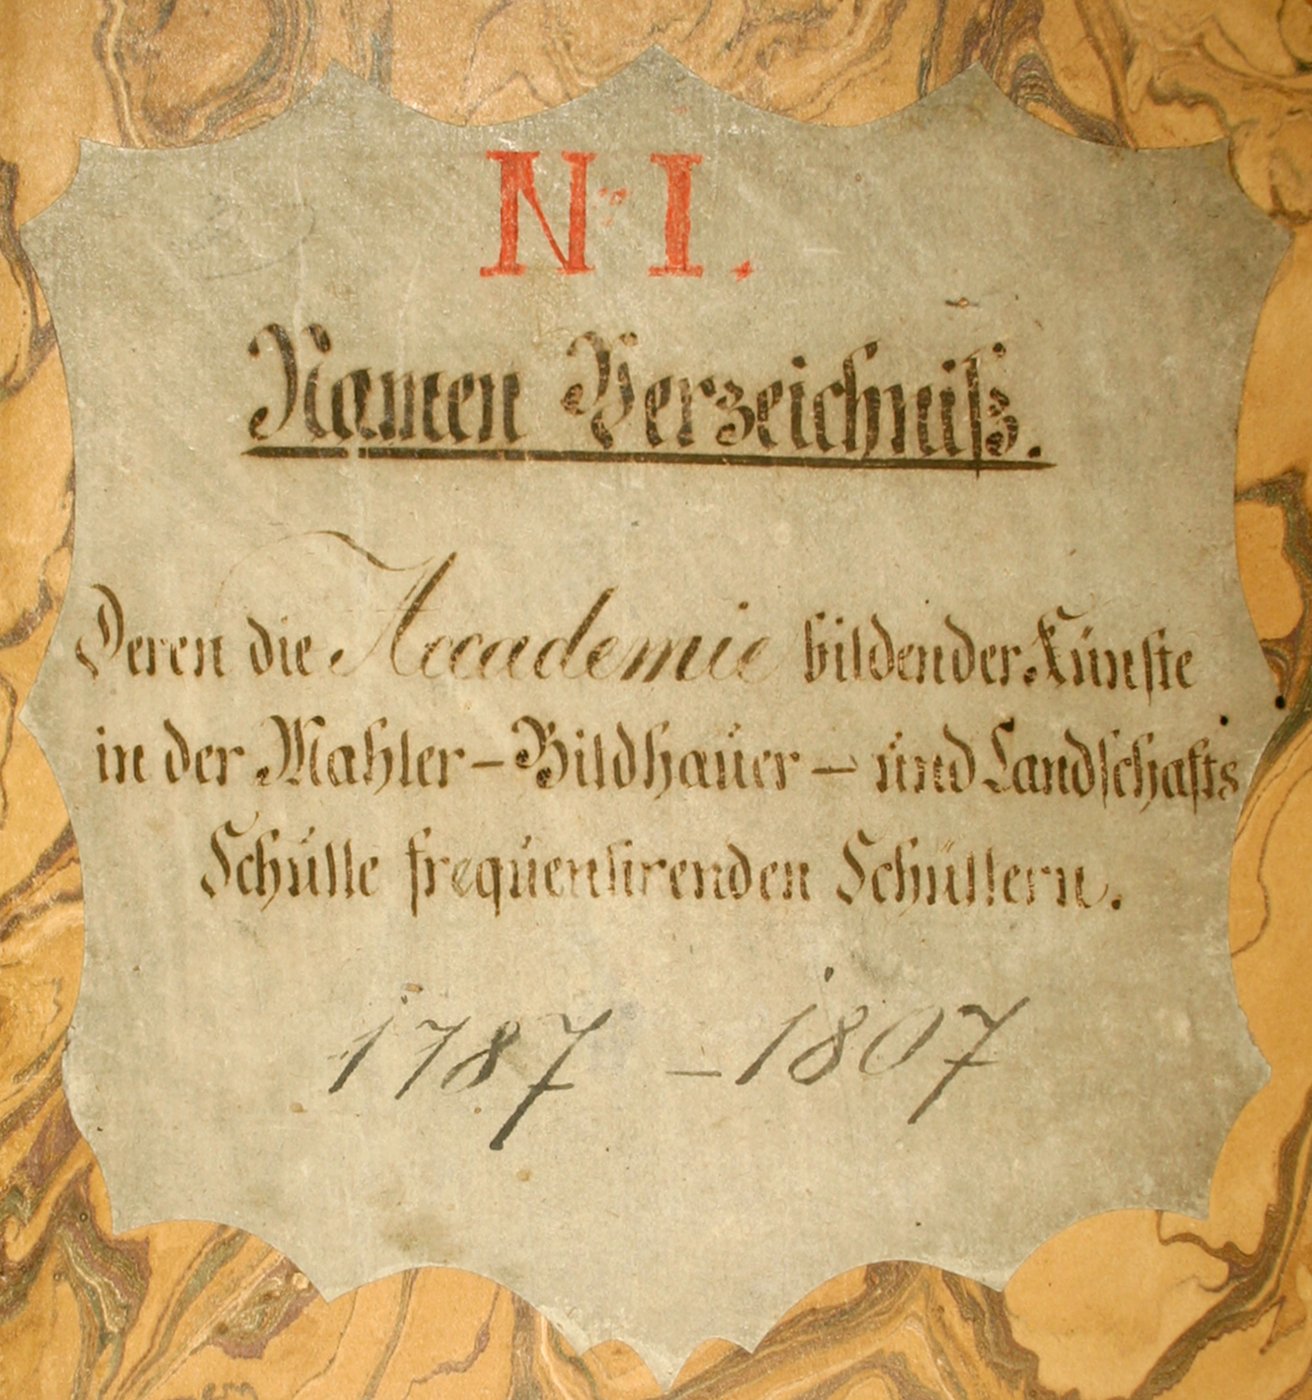 Nr I.
Namen Verzeichniß.
Deren die Accademie bildender Künste
in der Mahler-Bildhauer-und Landschafts
Schulle frequentirenden Schüllern.
1787 – 1807